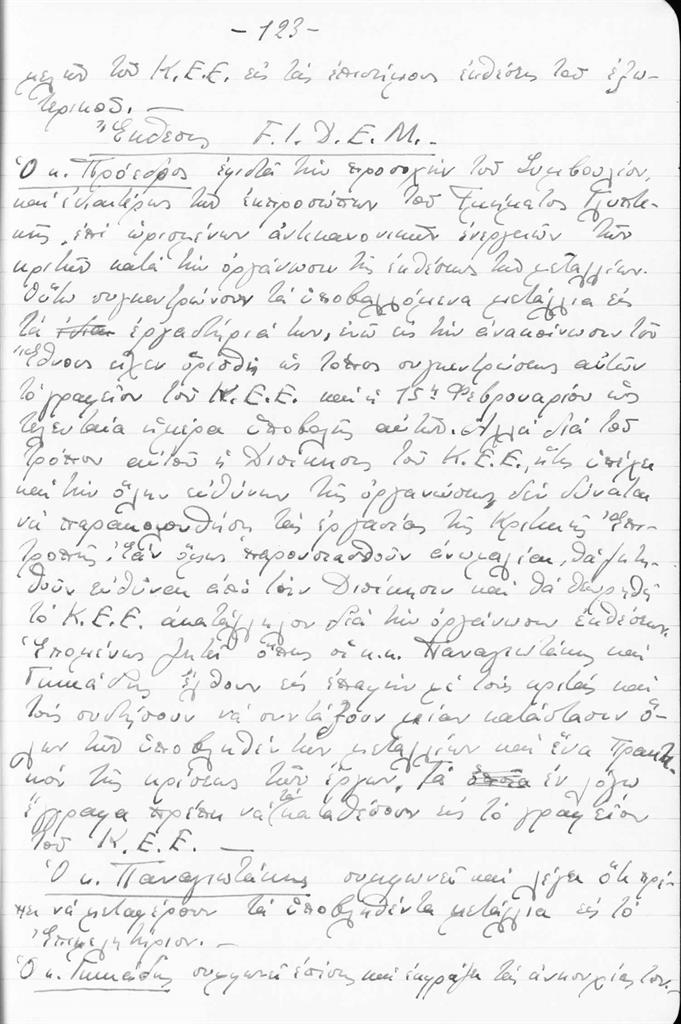 - 123 -
μελῶν τοῦ Κ.Ε.Ε. εἰς τὰς ἐπισήμους ἐκθέσεις τοῦ ἐξω-
τερικοῦ. —
Ἔκθεσις F.I.D.E.M.-
Ὁ κ. Πρόεδρος ἐφιστᾶ τὴν προσοχὴν τοῦ Συμβουλίου,
καὶ ἰδιαιτέρως τῶν ἐκπροσώπων τοῦ Τμήματος Γλυπτι-
κῆς, ἐπὶ ὡρισμένων ἀντικανονικῶν ἐνεργειῶν τῶν
κριτῶν κατὰ τὴν ὀργάνωσιν τῆς ἐκθέσεως τῶν μεταλλίων.
Οὗτοι συγκεντρώνουν τὰ ὑποβαλλόμενα μετάλλια εἰς
τὰ ἐργαστήριά των, ἐνῶ εἰς τὴν ἀνακοίνωσιν τοῦ
Ἔθνους εἶχεν ὁρισθῆ ὡς τόπος συγκεντρώσεως αὐτῶν
τὸ γραφεῖον τοῦ Κ.Ε.Ε. καὶ ἡ 15η Φεβρουαρίου ὡς
τελευταία ἡμέρα ὑποβολῆς αὐτῶν. Ἀλλὰ διὰ τοῦ
τρόπου αὐτοῦ ἡ Διοίκησις τοῦ Κ.Ε.Ε., ἥτις ὑπέχει
καὶ τὴν ὅλην εὐθύνην τῆς ὀργανώσεως, δὲν δύναται
νὰ παρακολουθήση τὰς ἐργασίας τῆς Κριτικῆς Ἐπι-
τροπῆς. Ἐὰν ὅμως παρουσιασθοῦν ἀνωμαλίαι, θὰ ζητη-
θοῦν εὐθῦναι ἀπὸ τὴν Διοίκησιν καὶ θὰ θεωρηθῆ
τὸ Κ.Ε.Ε. ἀκατάλληλον διὰ τὴν ὀργάνωσιν ἐκθέσεων.
Ἑπομένως ζητεῖ ὅπως οἱ κ.κ. Παναγιωτάκης καὶ
ἔλθουν εἰς ἐπαφὴν μὲ τοὺς κριτὰς καὶ
τοὺς συστήσουν νὰ συντάξουν μίαν κατάστασιν ὅ-
λων τῶν ὑποβληθέντων μεταλλίων καὶ ἕνα πρακτι-
κὸν τῆς κρίσεως τῶν ἔργων. Τὰ ὁποῖα ἐν λόγω
ἔγγραφα πρέπει νὰ τὰ καταθέσουν εἰς τὸ γραφεῖον
τοῦ Κ.Ε.Ε. —
Ὁ κ. Παναγιωτάκης συμφωνεῖ καὶ λέγει ὅτι πρέ-
πει νὰ μεταφέρουν τὰ ὑποβληθέντα μετάλλια εἰς τὸ
Ἐπιμελητήριον. -
Ὁ κ. συμφωνεῖ ἐπίσης καὶ ἐκφράζει τὰς ἀνησυχίας του.-